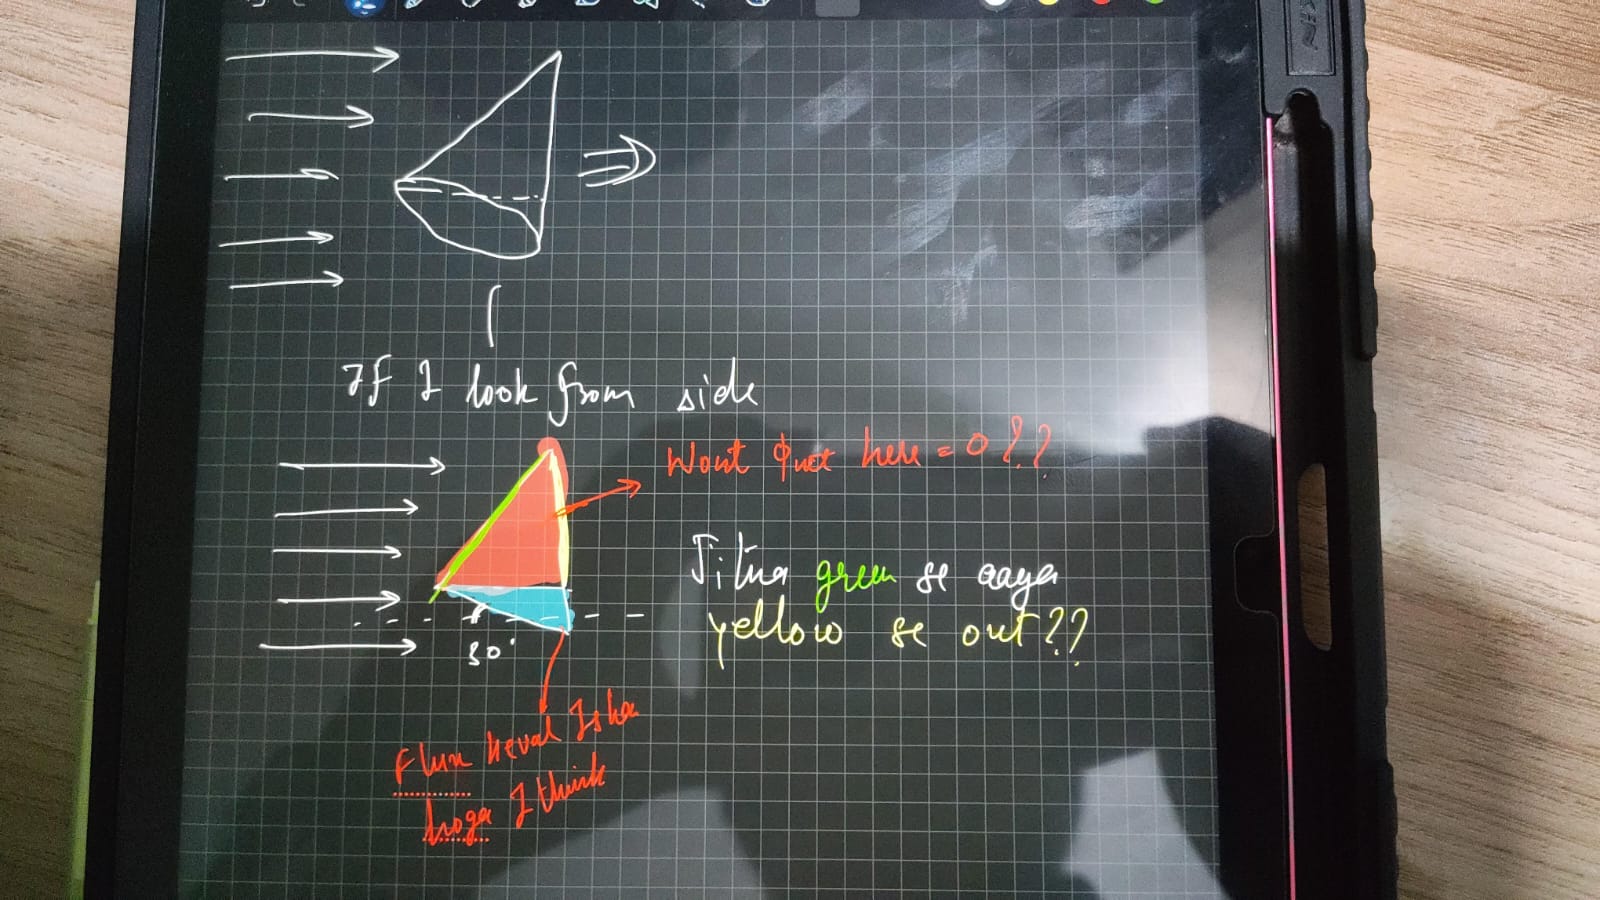 If I look from side
Wont φnet here = 0 ??
Jitna green se aaya
yellow se out ??
30°
Flux keval Iska
hoga I think